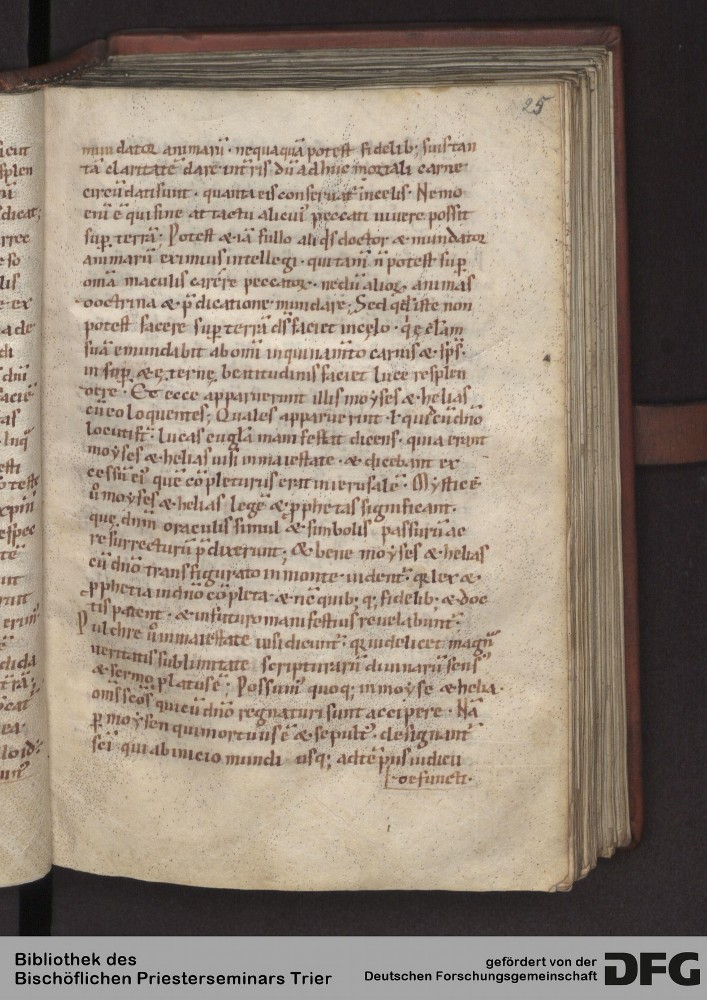 25
mundator animarū · nequaquā potest fidelib; suis tan
tā claritatē dare in tr̄is dū adhuc mortali carne
circūdati sunt · quanta eis conseruat̄ in celis · Nemo
enī ē qui sine attactu alicui' peccati uiuere possit
sup̱ terrā; Potest & iā fullo aliq̄s doctor & mundator
animarū eximius intellegi · qui tam̄ n̄ potest sup̱
om̄a maculis carere peccatoꝝ · nedū alioꝝ animas
doctrina & p̄dicatione mundare; Sed qđ iste non
potest facere sup̱ terrā d̄s faciet in cęlo · q̇ ęcl̄am
suā emundabit ab omī inquinam̄to carnis & sp̄s ·
insup̱ & ęternę beatitudinis faciet luce resplen
dere · Et ecce apparuerunt illis moyses & helias
cū eo loquentes; Quales apparuerint · l̄ quid cū dn̄o
locuti st̄ · lucas eugl̄a manifestat dicens · quia erant
moyses & helias uisi in maiestate · & dicebant ex
cessū ei' quē cōpleturus erat in ierusalē · Mystice
ů moyses & helias legē & ꝓphetas significant ·
que dn̄m oraculis simul & simbolis passurū ac
resurrecturū p̄dixerunt; & bene moyses & helias
cū dn̄o transfigurato in monte uident̄ · q̄ lex &
ꝓphetia in dn̄o cōpleta & nc̄ quib; q; fidelib; & doc
tis patent · & in futuro manifestius reuelabunt̄ ·
Pulchre ů in maiestate uisi dicunt̄ · q̄ uidelicet magn̄
ueritatis sublimitate scripturarū diuinarū sens'
& sermo platus ē; Possum' quoq; in moyse & helia ·
om̄s sc̄os qui cū dn̄o regnaturi sunt accipere · Nā
p̱ moysen qui mortuus ē & sepult' · designant̄
sc̄i qui ab inicio mundi usq; ad tēp̱us iudicii
defuncti ·
Bibliothek des
Bischöflichen Priesterseminars Trier
gefördert von der
Deutschen Forschungsgemeinschaft
DFG